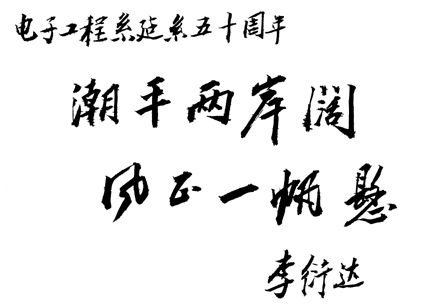 电子工程系建系五十周年
潮平两岸阔
风正一帆悬
李衍达